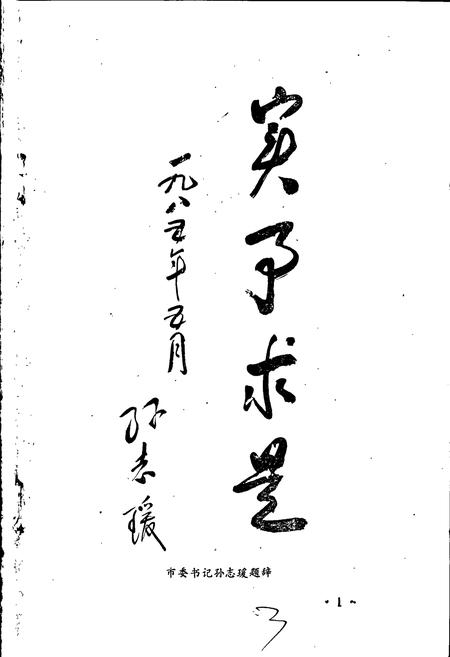 实事求是
一九八五年五月
孙志瑗
市委书记孙志瑗题辞
·1~
3